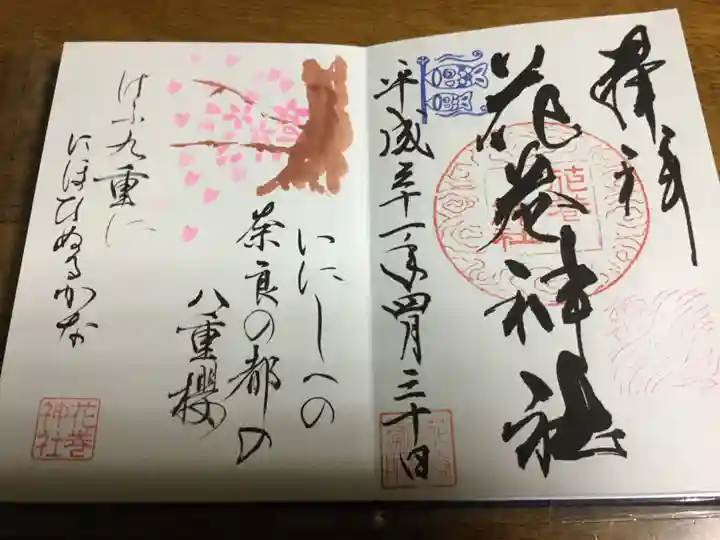 奉拝
花巻神社
平成三十一年四月三十日
花巻
神社
いにしへの
奈良の都の
八重櫻
けふ九重に
にほひぬるかな
花巻
神社